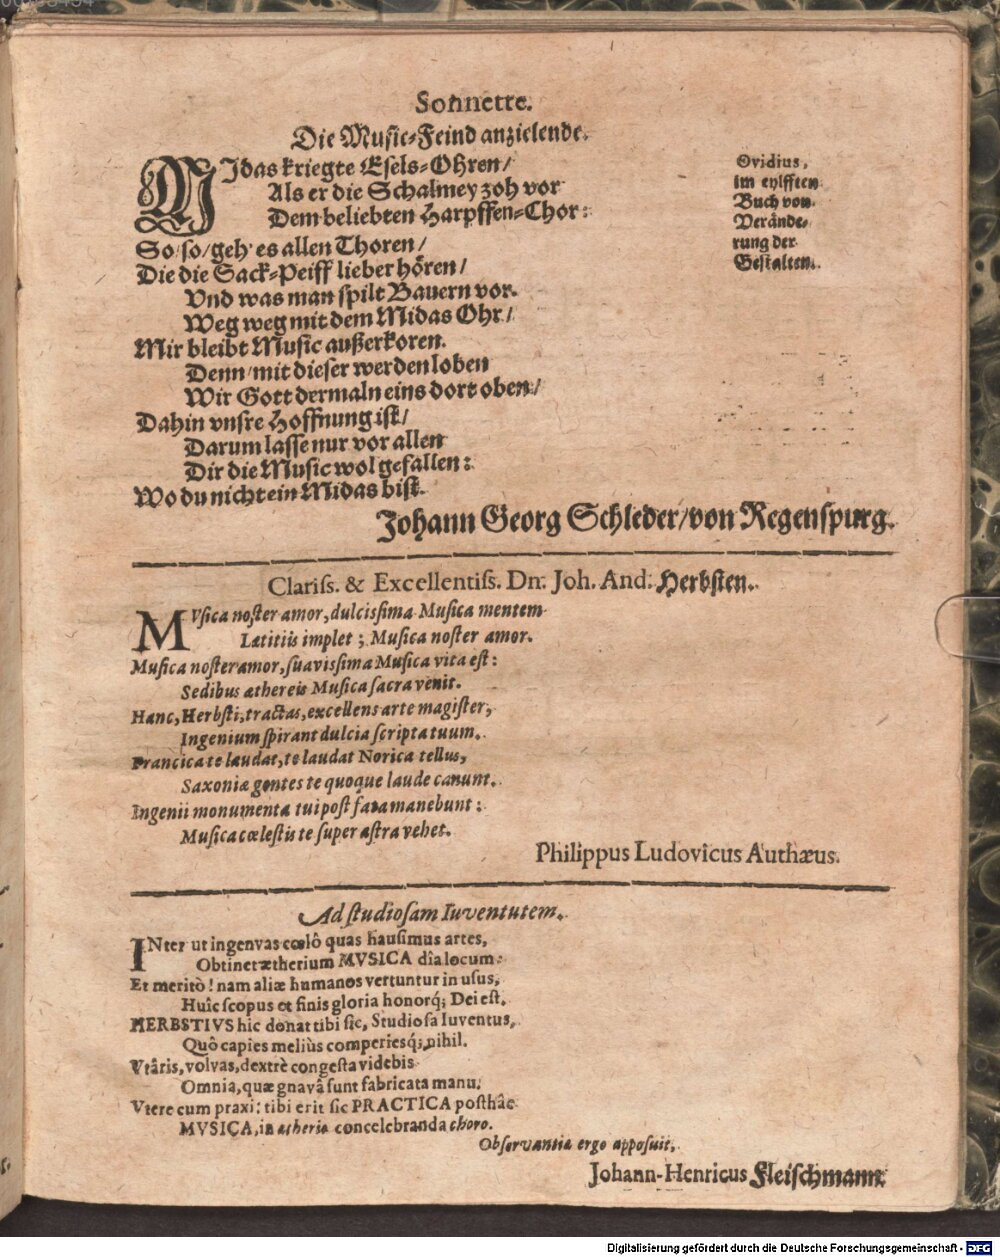 Sonnette.
Die Music-Feind anzielende.
MIdas kriegte Esels-Ohren/
Als er die Schalmey zoh vor
Dem beliebten Harpffen-Chor:
So/so/geh' es allen Thoren/
Die die Sack-Peiff lieber hören/
Vnd was man spilt Bauern vor.
Weg weg mit dem Midas Ohr/
Mir bleibt Music außerkoren.
Denn/mit dieser werden loben
Wir Gott dermaln eins dort oben/
Dahin vnsre Hoffnung ist/
Darum lasse nur vor allen
Dir die Music wol gefallen:
Wo du nicht ein Midas bist.
Ovidius,
im eylfften
Buch von
Verände-
rung der
Gestalten.
Johann Georg Schleder/von Regenspurg.
Clariss. & Excellentiss. Dn. Joh. And. Herbsten.
MVsica noster amor, dulcissima Musica mentem
Lætitiis implet; Musica noster amor.
Musica noster amor, suavissima Musica vita est:
Sedibus æthereis Musica sacra venit.
Hanc, Herbsti, tractas, excellens arte magister,
Ingenium spirant dulcia scripta tuum.
Francica te laudat, te laudat Norica tellus,
Saxoniæ gentes te quoque laude canunt.
Ingenii monumenta tui post fata manebunt:
Musica cœlestis te super astra vehet.
Philippus Ludovicus Authæus.
Ad studiosam Iuventutem.
INter ut ingenvas cœlô quas hausimus artes,
Obtinet ætherium MVSICA dîa locum:
Et meritò! nam aliæ humanos vertuntur in usus,
Huîc scopus et finis gloria honorq́; Dei est.
HERBSTIVS hic donat tibi sic, Studiosa Iuventus,
Quô capies meliùs comperiesq́; nihil.
Vtâris, volvas, dextrè congesta videbis
Omnia, quæ gnavâ sunt fabricata manu.
Vtere cum praxi: tibi erit sic PRACTICA posthâc
MVSICA, in ætherio concelebranda choro.
Observantiæ ergo apposuit,
Johann-Henricus Fleischmann.
Digitalisierung gefördert durch die Deutsche Forschungsgemeinschaft - DFG